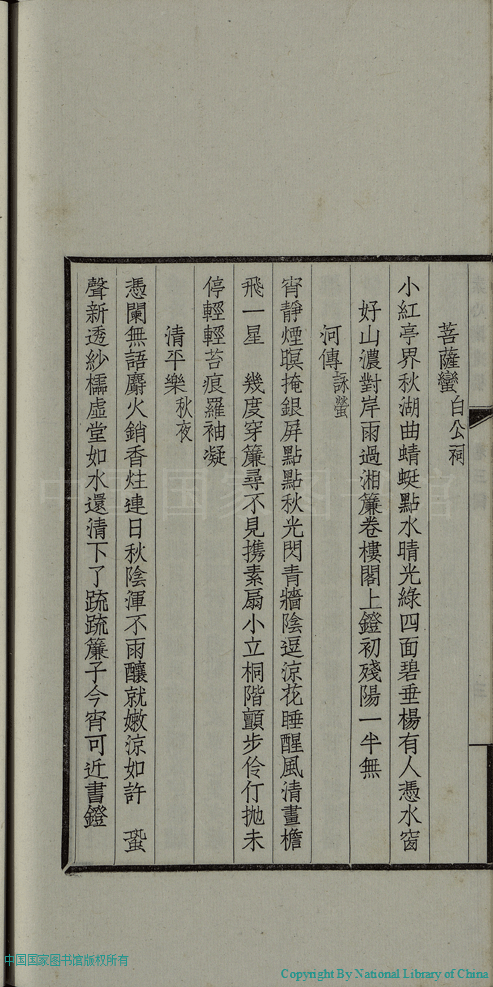 菩薩蠻 白公祠
小紅亭界秋湖曲蜻蜓點水晴光綠四面碧垂楊有人憑水窗
好山濃對岸雨過湘簾卷樓閣上鐙初殘陽一半無
河傳 詠螢
宵靜煙暝掩銀屏點點秋光閃青牆陰逗涼花睡醒風清畫檐
飛一星　幾度穿簾尋不見攜素扇小立桐階顫步伶仃拋未
停輕輕苔痕羅袖凝
清平樂 秋夜
憑闌無語麝火銷香炷連日秋陰渾不雨釀就嫩涼如許　蛩
聲新透紗櫺虛堂如水還清下了疏疏簾子今宵可近書鐙
中国国家图书馆版权所有
Copyright By National Library of China